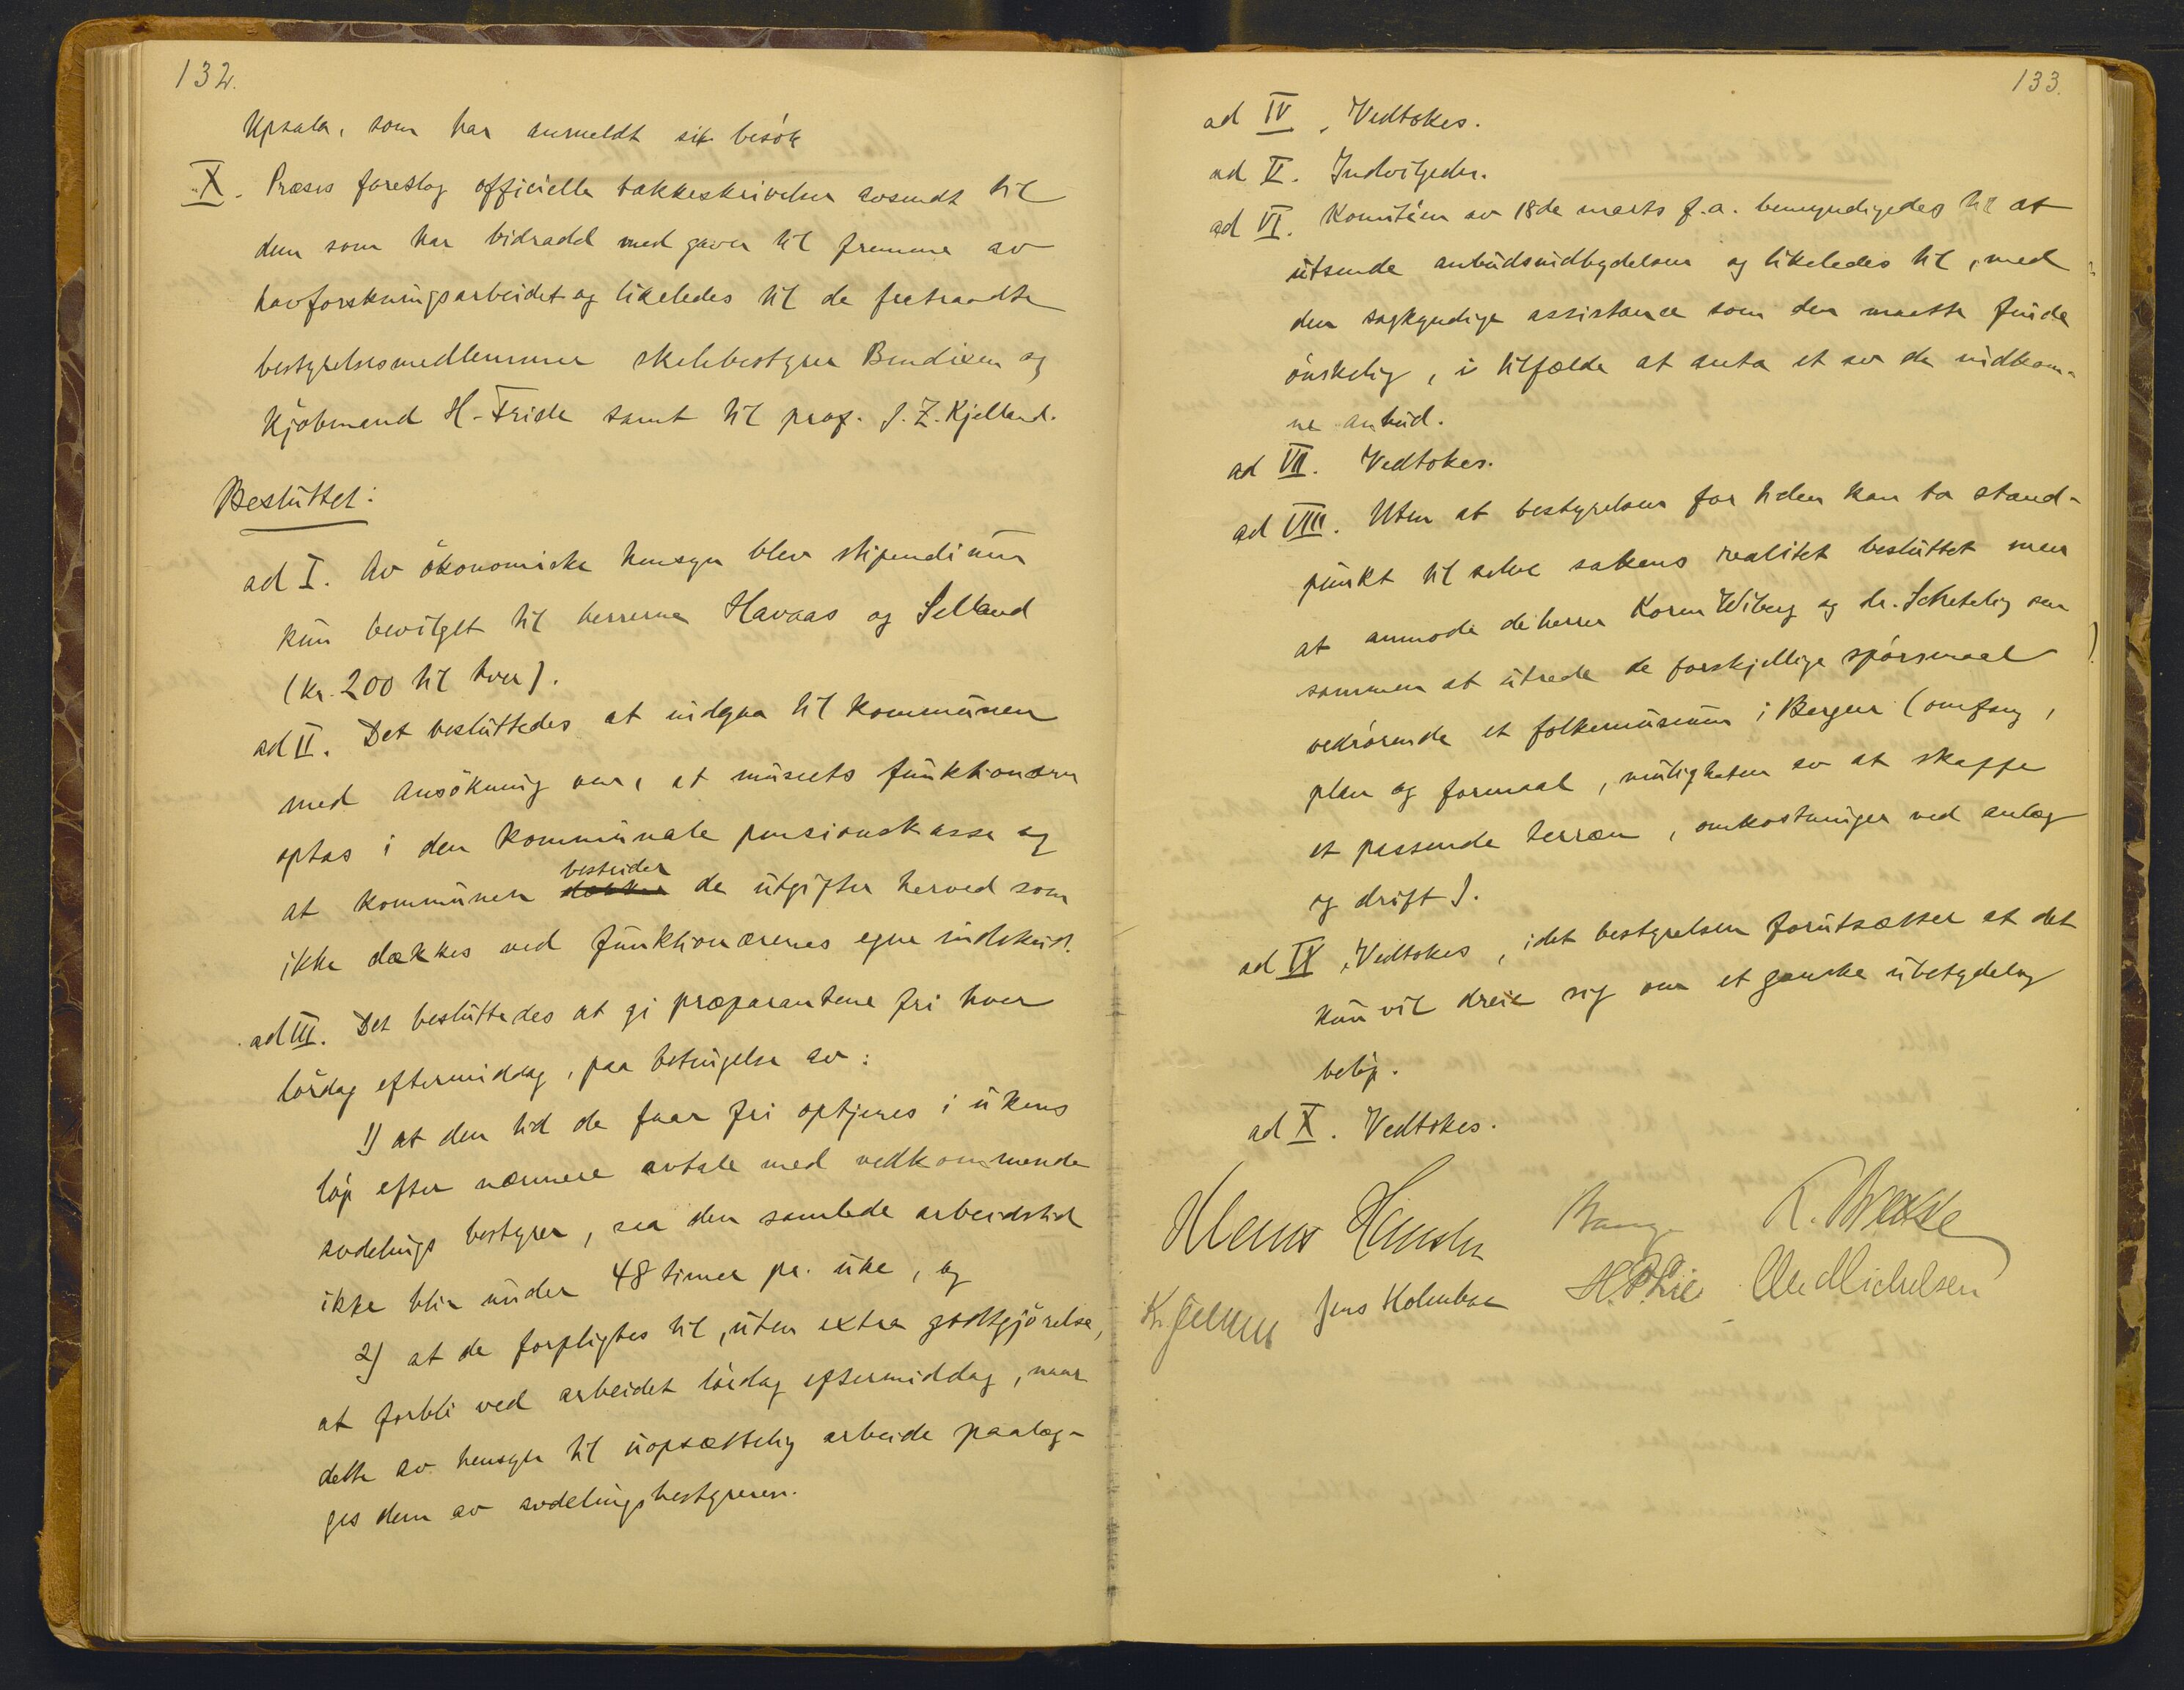 132.
Upsala, som har anmeldt sit besök
X. Præses foreslog officielle takkeskrivelser avsendt til
dem som har bidradd med gaver til fremme av
havforskningsarbeidet og likeledes til de fratraadte
bestyrelsesmedlemmer skolebestyrer Bendixen og
kjöbmand H. Friele samt til prof. J. Z. Kjelland.
Besluttet:
ad I. Av ökonomiske hensyn blev stipendium
kun bevilget til herrerne Havaas og Selland
(kr. 200 til hver).
ad II. Det besluttedes at indgaa til kommunen
med ansökning om, at museets funktionærer
optas i den kommunale pensionskasse og
bestrider
at kommunen dækker de utgifter herved som
ikke dækkes ved funktionærenes egne indskud.
ad III. Det besluttedes at gi præparantene fri hver
lördag eftermiddag, paa betingelse av:
1) at den tid de faar fri optjenes i ukens
löp efter nærmere avtale med vedkommende
avdelings bestyrer, saa den samlede arbeidstid
ikke blir under 48 timer pr. uke, og
2) at de forpligtes til, uten extra godtgjörelse,
at forbli ved arbeidet lördag eftermiddag, naar
dette av hensyn til uopsættelig arbeide paalæg-
ges dem av avdelingsbestyreren.
133.
ad IV. Vedtokes.
ad V. Indvilgedes.
ad VI. Komitéen av 18de marts f.a. bemyndigedes til at
utsende anbudsindbydelsen og likeledes til, med
den sagkyndige assistance som den maatte finde
önskelig, i tilfælde at anta et av de indkom-
ne anbud.
ad VII. Vedtokes.
ad VIII. Uten at bestyrelsen for tiden kan ta stand-
punkt til selve sakens realitet besluttet man
at anmode de herrer Koren Wiberg og dr. Schetelig om
sammen at utrede de forskjellige spörsmaal
vedrörende et folkemuseum i Bergen (omfang,
plan og formaal, muligheten av at skaffe
et passende terræn, omkostninger ved anlæg
og drift).
ad IX. Vedtokes, idet bestyrelsen forutsætter at det
kun vil dreie sig om et ganske ubetydelig
belöp.
ad X. Vedtokes.
Klaus Hanssen
Jens Holmboe H. P. Lie Chr Michelsen